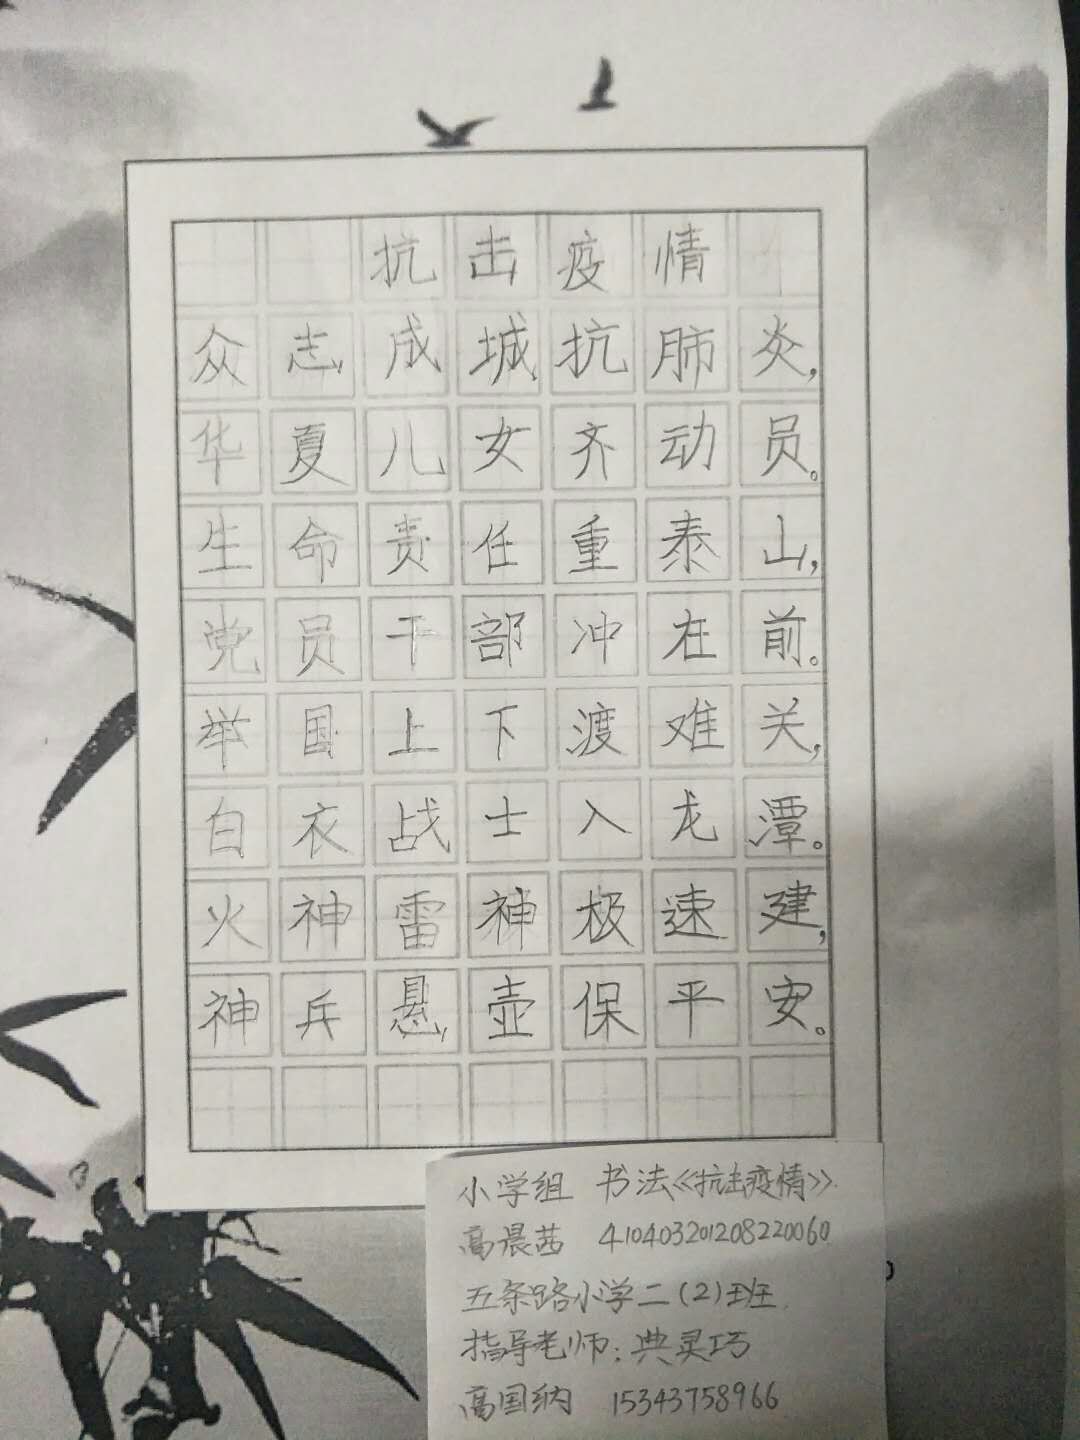 抗击疫情
众志成城抗肺炎,
华夏儿女齐动员。
生命责任重泰山,
党员干部冲在前。
举国上下渡难关,
白衣战士入龙潭。
火神雷神极速建,
神兵悬壶保平安。
小学组 书法《抗击疫情》
高晨茜 410403201208220060
五条路小学二(2)班
指导老师:典灵巧
高国纳 15343758966